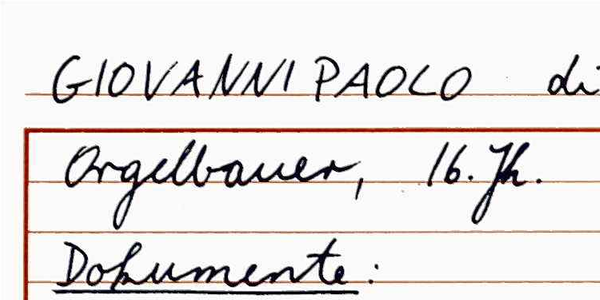 GIOVANNI PAOLO di
Orgelbauer, 16. Jh.
Dokumente: